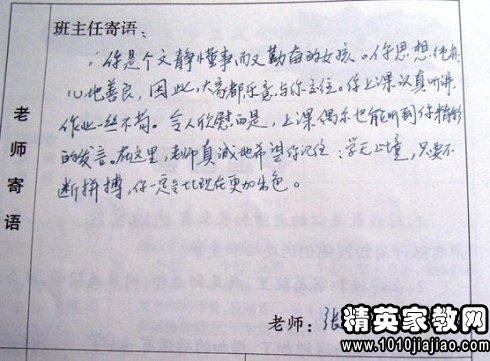 班主任寄语：
你是个文静懂事而又勤奋的女孩。你思想纯真，
心地善良，因此，大家都乐意与你交往。你上课认真听讲，
作业一丝不苟。令人欣慰的是，上课偶尔也能听到你精彩
的发言。在这里，老师真诚地希望你记住：学无止境，只要不
断拼搏，你一定会比现在更加出色。
老师寄语
老师：张
精英家教网
www.1010jiajiao.com